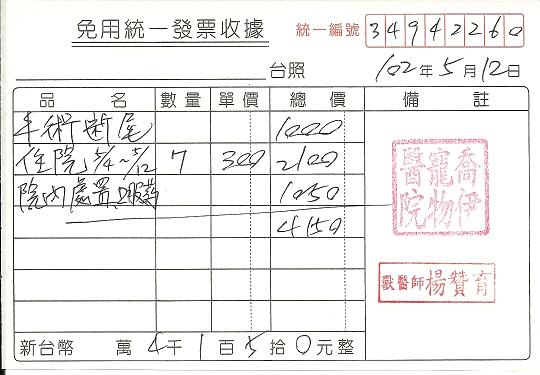 免用統一發票收據
統一編號 34942260
台照 102年5月12日
品名 數量 單價 總價 備註
手術断尾 1000
住院 5/4~5/12 7 300 2100
院內處置、口服藥 1050
4150
喬伊寵物醫院
獸醫師楊贊育
新台幣 萬4千1百5拾0元整